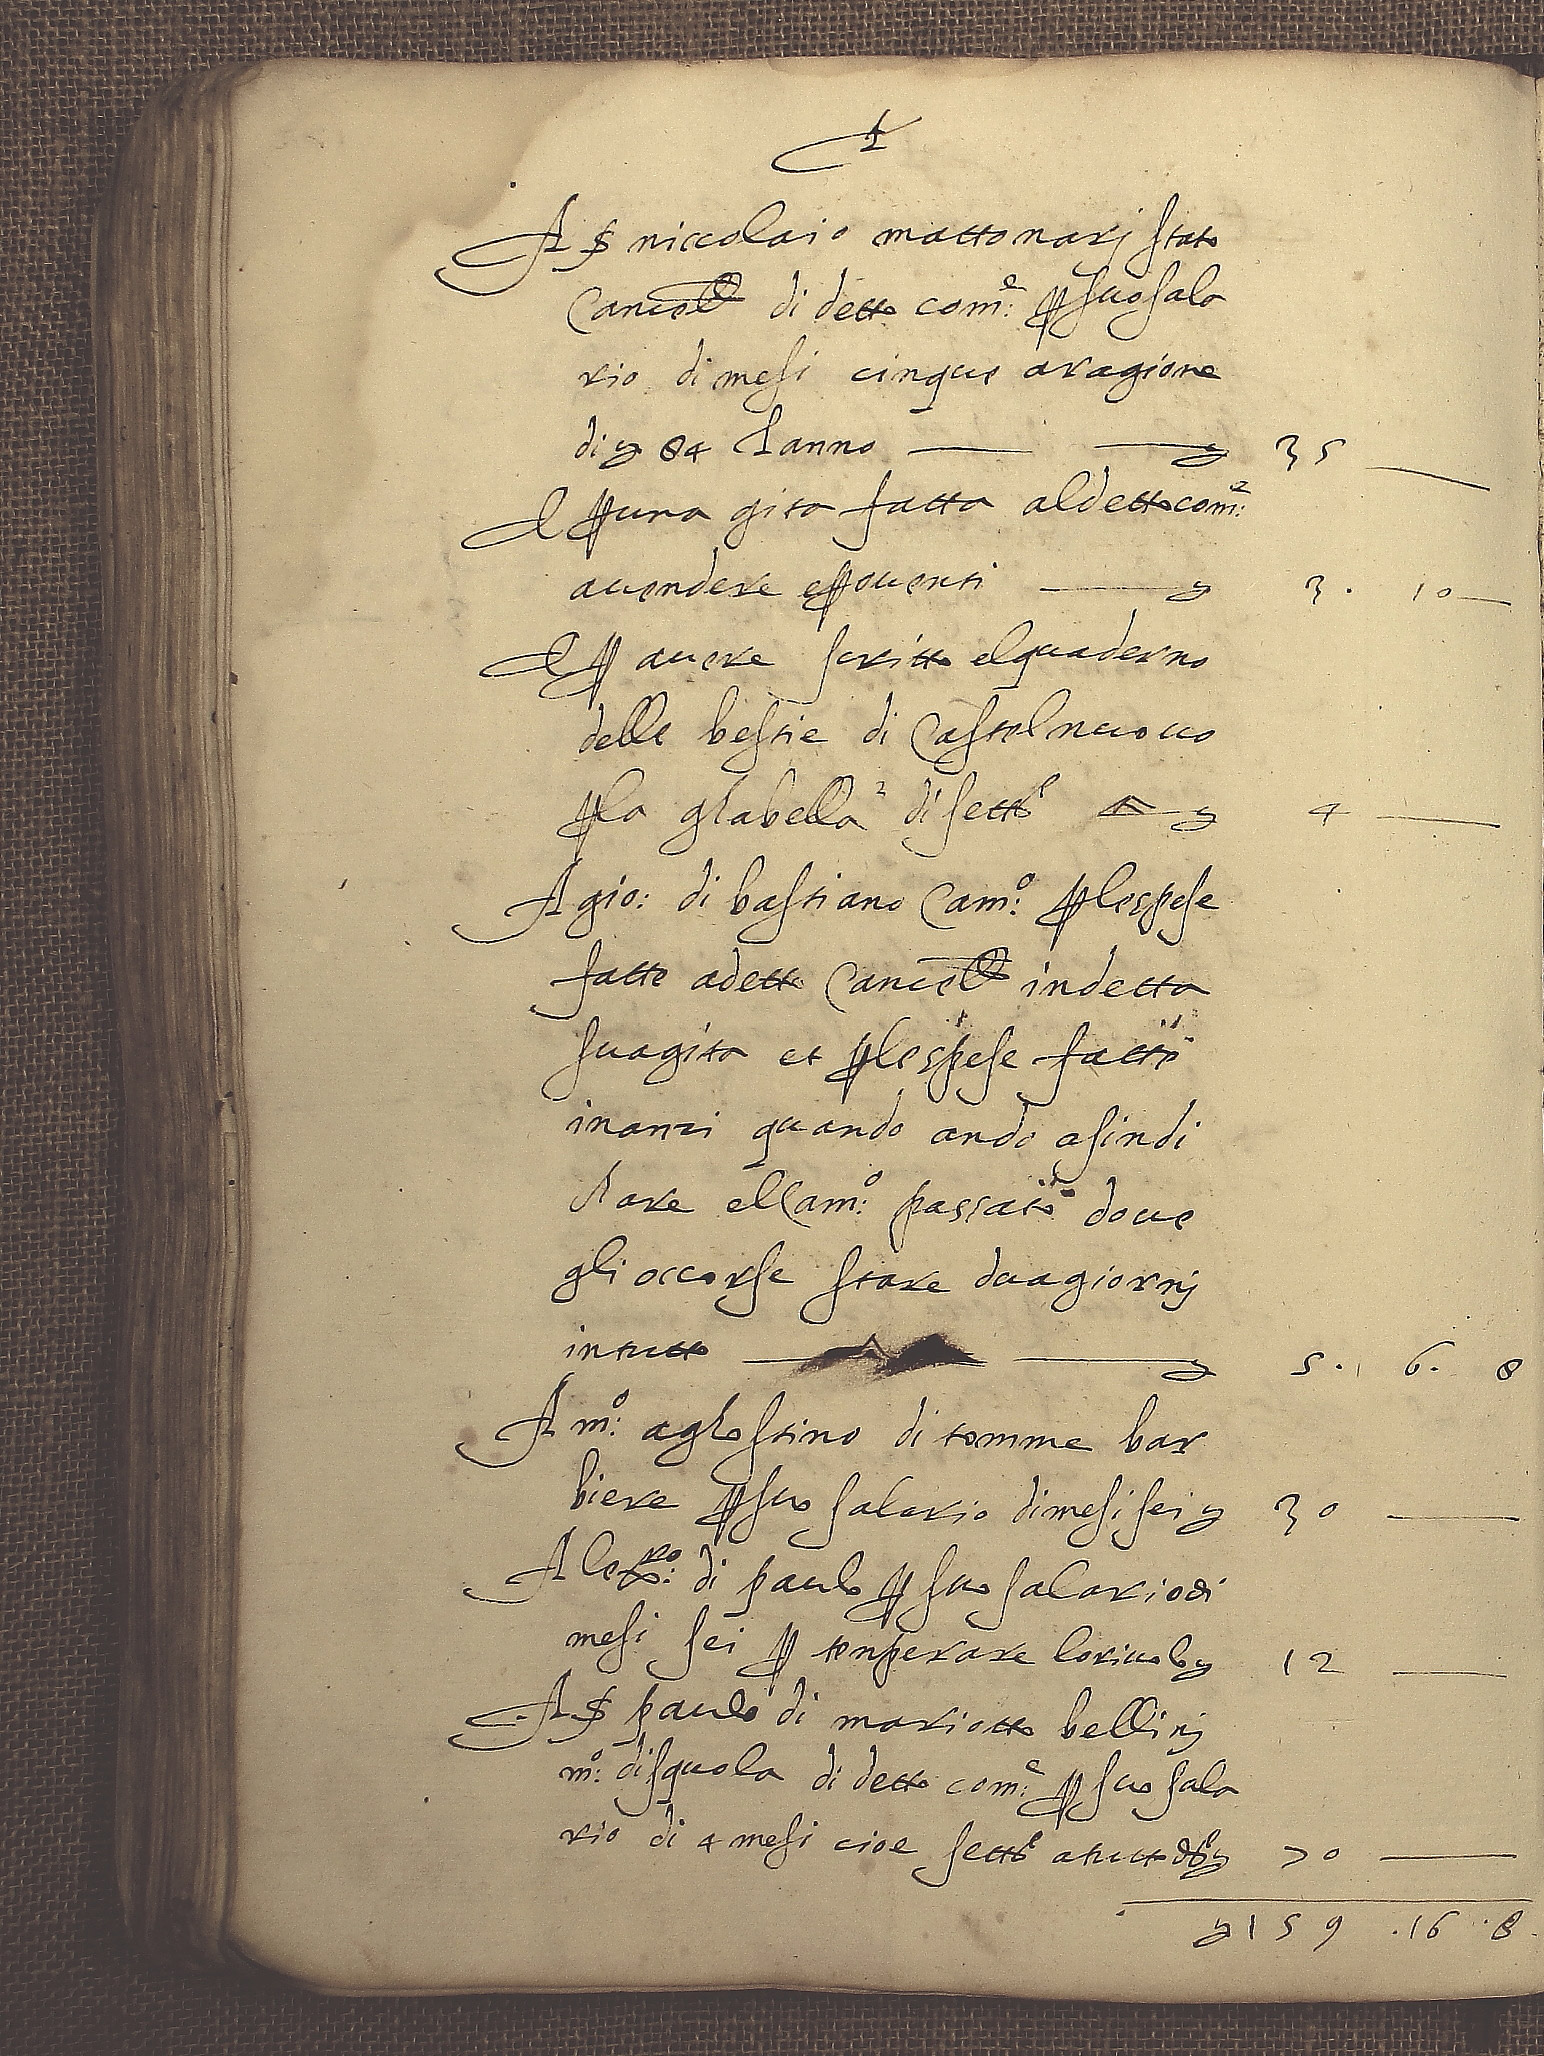 A S niccolaio mattonarj stato
Cancell di detto com:e p suo sala
rio di mesi cinque aragione
di 84 lanno 35
E p una gita fatta al detto com:e
auendere e prouenti 3. 10
E p auere scritto el quaderno
delle bestie di Castelnuouo
p la ghabella di settbe 4
A gio: di bastiano Cam:o p lespese
fatte a detto Cancell in detta
sua gita et p lespese fatte
inanzi quando ando a sindi
chare el Cam:o passato doue
gli occorse stare dua giornj
in tutto 5. 6. 8
A m:o aghostino di tomme bar
biere p suo salario di mesi sei 30
A di paulo p suo salario di
mesi sei p tenperare loriuolo 12
A S paulo di mariotto bellinj
m:o di squola di detto com:e p suo sala
rio di 4 mesi cioe settbe a tutto 70
159 .16 .8